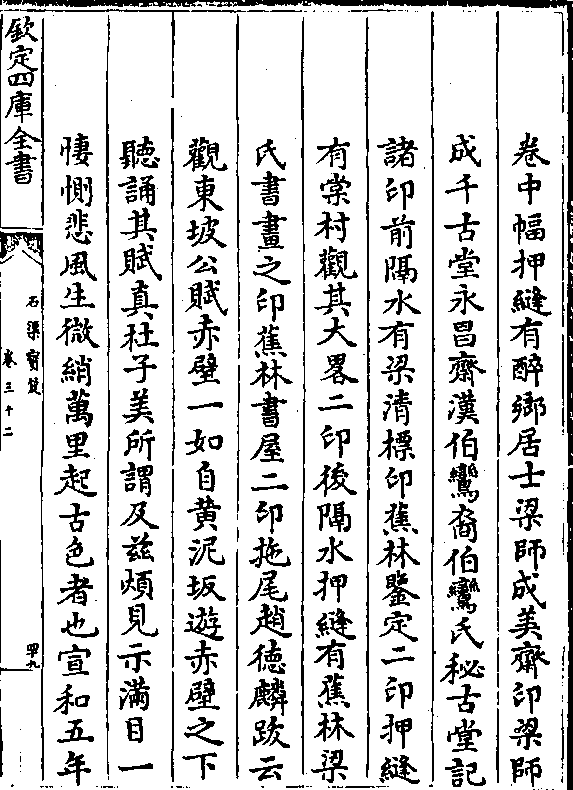 卷中幅押縫有醉鄉居士梁師成美齋印梁師
成千古堂永昌齋漢伯鸞裔伯鸞氏秘古堂記
諸印前隔水有梁清標印蕉林鑒定二印押縫
有棠村觀其大畧二印後隔水押縫有蕉林梁
氏書畫之印蕉林書屋二印拖尾趙徳麟跋云
觀東坡公賦赤壁一如自黄泥坂遊赤壁之下
聽誦其賦真杜子美所謂及兹煩見示滿目一
悽惻悲風生微綃萬里起古色者也宣和五年
欽定四庫全書
石渠寳笈
卷三十二
四九